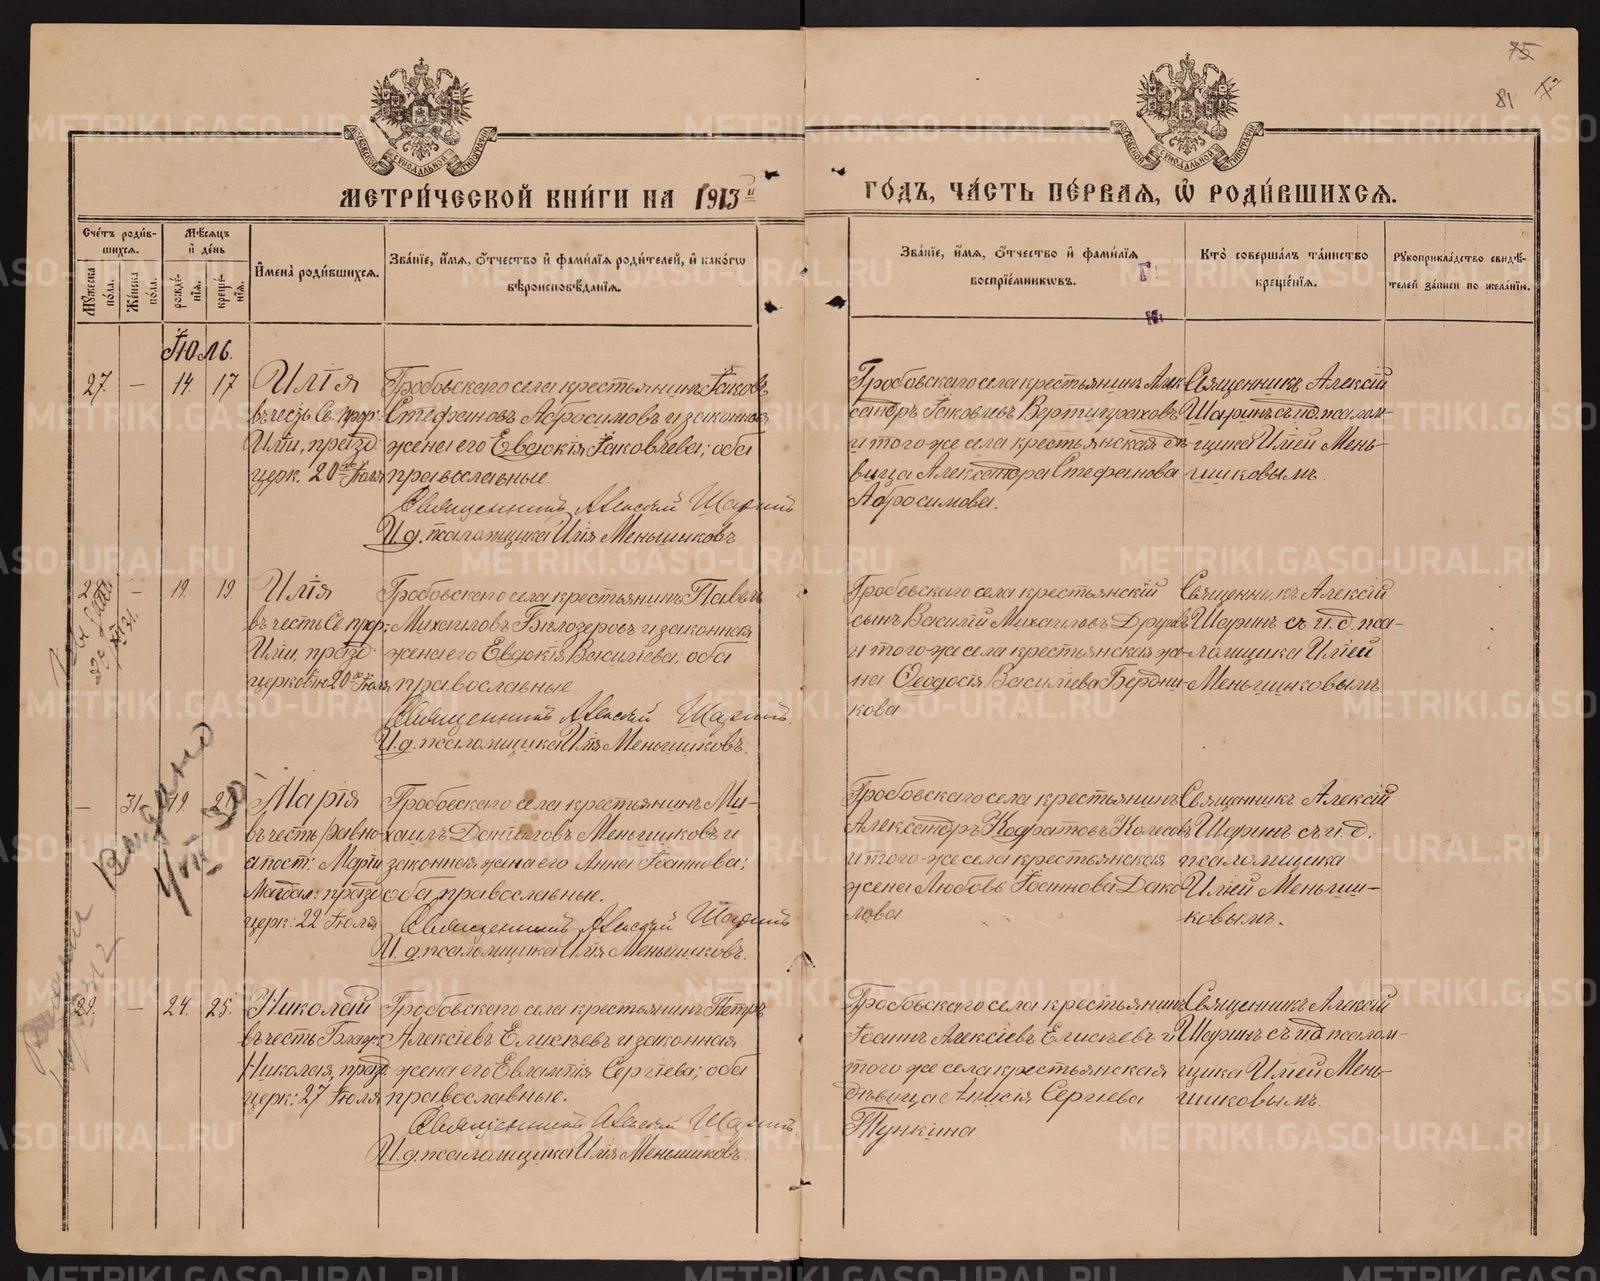 75
81
МЕТРИ́ЧЕСКОЙ КНИ́ГИ НА 1913й
ГО́ДЪ, ЧА́СТЬ ПЕ́РВАЯ, Ѽ РОДИ́ВШИХСЯ.
Сче́тъ роди́в-
шихся.
Мѣ́сяцъ
и҆ де́нь
Мꙋжеска пола.
Же́нска пола.
рожде́-
нїя.
креще́-
нїя.
И҆мена̀ роди́вшихся.
Зва́нїе, и҆́мя, ѻ҆́тчество и҆ фами́лїя роди́телей, и҆ како́гѡ
вѣроисповѣ́данїя.
Зва́нїе, и҆́мя, ѻ҆́тчество и҆ фами́лїя
воспрїе́мникѡвъ.
Кто̀ соверша́лъ та́инство
креще́нїя.
Рꙋкоприкла́дство свидѣ́-
телей за́писи по жела́нїю.
Іюль.
27. — 14 17 Илія
въ честь Св. прор:
Иліи, празд
церк. 20го Іюля
Гробовскаго села крестьянинъ Іаковъ
Стефановъ Абросимовъ и законная
жена его Евдокія Іаковлева; оба
православные.
Священникъ Алексій Шаринъ
И. д. псаломщика Илія Меньшиковъ.
Гробовскаго села крестьянинъ Алек
сандръ Іаковлевъ Вертипраховъ
и того-же села крестьянская дѣ-
вица Александра Стефанова
Абросимова.
Священникъ Алексій
Шаринъ съ и. д. псалом-
щика Иліей Мень-
шиковымъ.
— 19. 19 Илія
въ честь Св. прор:
Иліи, празд
церковію 20го Іюля
Гробовскаго села крестьянинъ Павелъ
Михаиловъ Бѣлозеровъ и законная
жена его Евдокія Василіева; оба
православные.
Священникъ Алексій Шаринъ.
И. д. псаломщика Илія Меньшиковъ.
Гробовскаго села крестьянскій
сынъ Василій Михаиловъ
и того-же села крестьянская же-
на Ѳеодосія Василіева Бердни-
кова
Священникъ Алексій
Шаринъ съ и. д. пса-
ломщика Иліей
Меньшиковымъ.
— 31. 19. 21 Марія
въ честь равно-
апост: Маріи
Магдал: празд
церк: 22 Іюля
Гробовскаго села крестьянинъ Ми-
хаилъ Даніиловъ Меньшиковъ и
законная жена его Анна Іоаннова;
оба православные.
Священникъ Алексій Шаринъ
И. д. псаломщика Илія Меньшиковъ.
Гробовскаго села крестьянинъ
Александръ Кодратовъ Колесовъ
и того-же села крестьянская
жена Любовь Іоаннова
Священникъ Алексій
Шаринъ съ и. д.
псаломщика
Иліей Меньши-
ковымъ.
выдано
29. — 24. 25. Николай
въ честь Благ:
Николая, празд.
церк: 27 Іюля
Гробовскаго села крестьянинъ Петръ
Алексіевъ Елисѣевъ и законная
жена его Евлампія Сергіева; оба
православные.
Священникъ Алексій Шаринъ
И. д. псаломщика Илія Меньшиковъ.
Гробовскаго села крестьянинъ
Іоаннъ Алексіевъ Елисѣевъ и
того же села крестьянская
дѣвица Анисія Сергіева
Тункина.
Священникъ Алексій
Шаринъ съ и. д. псалом-
щика Иліей Мень-
шиковымъ.
METRIKI.GASO-URAL.RU